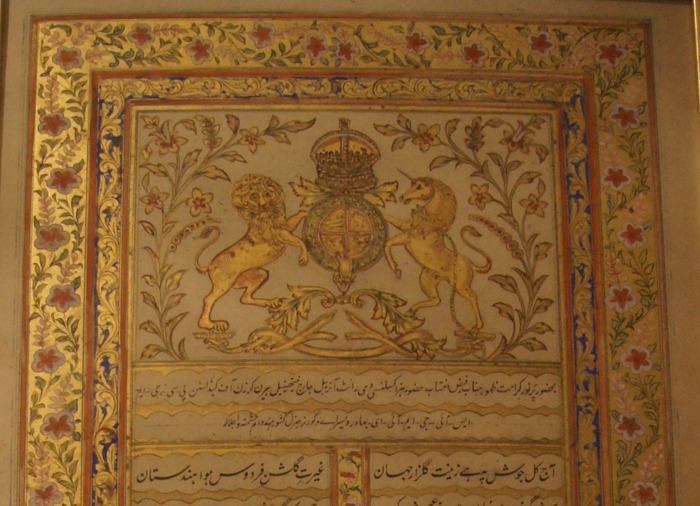 بحضور پرنور کرامت ظہور جناب فیض انتساب حضور ہز اکسلنسی دی رائٹ آنریبل جارج نیتھینیل بیرن کرزن آف کیڈلسٹن پی سی ، جی ، ایم
ایس ۔ آئی ۔ جی ۔ ایم ۔ آئی ۔ ای ۔ بہادر ویسراے و گورنر جنرل کشور ہند دام حشمتہ و اجلالہ
آج کل جوش پہ ہے زینت گلزار جہان
غیرت گلشن فردوس ہوا ہندستان